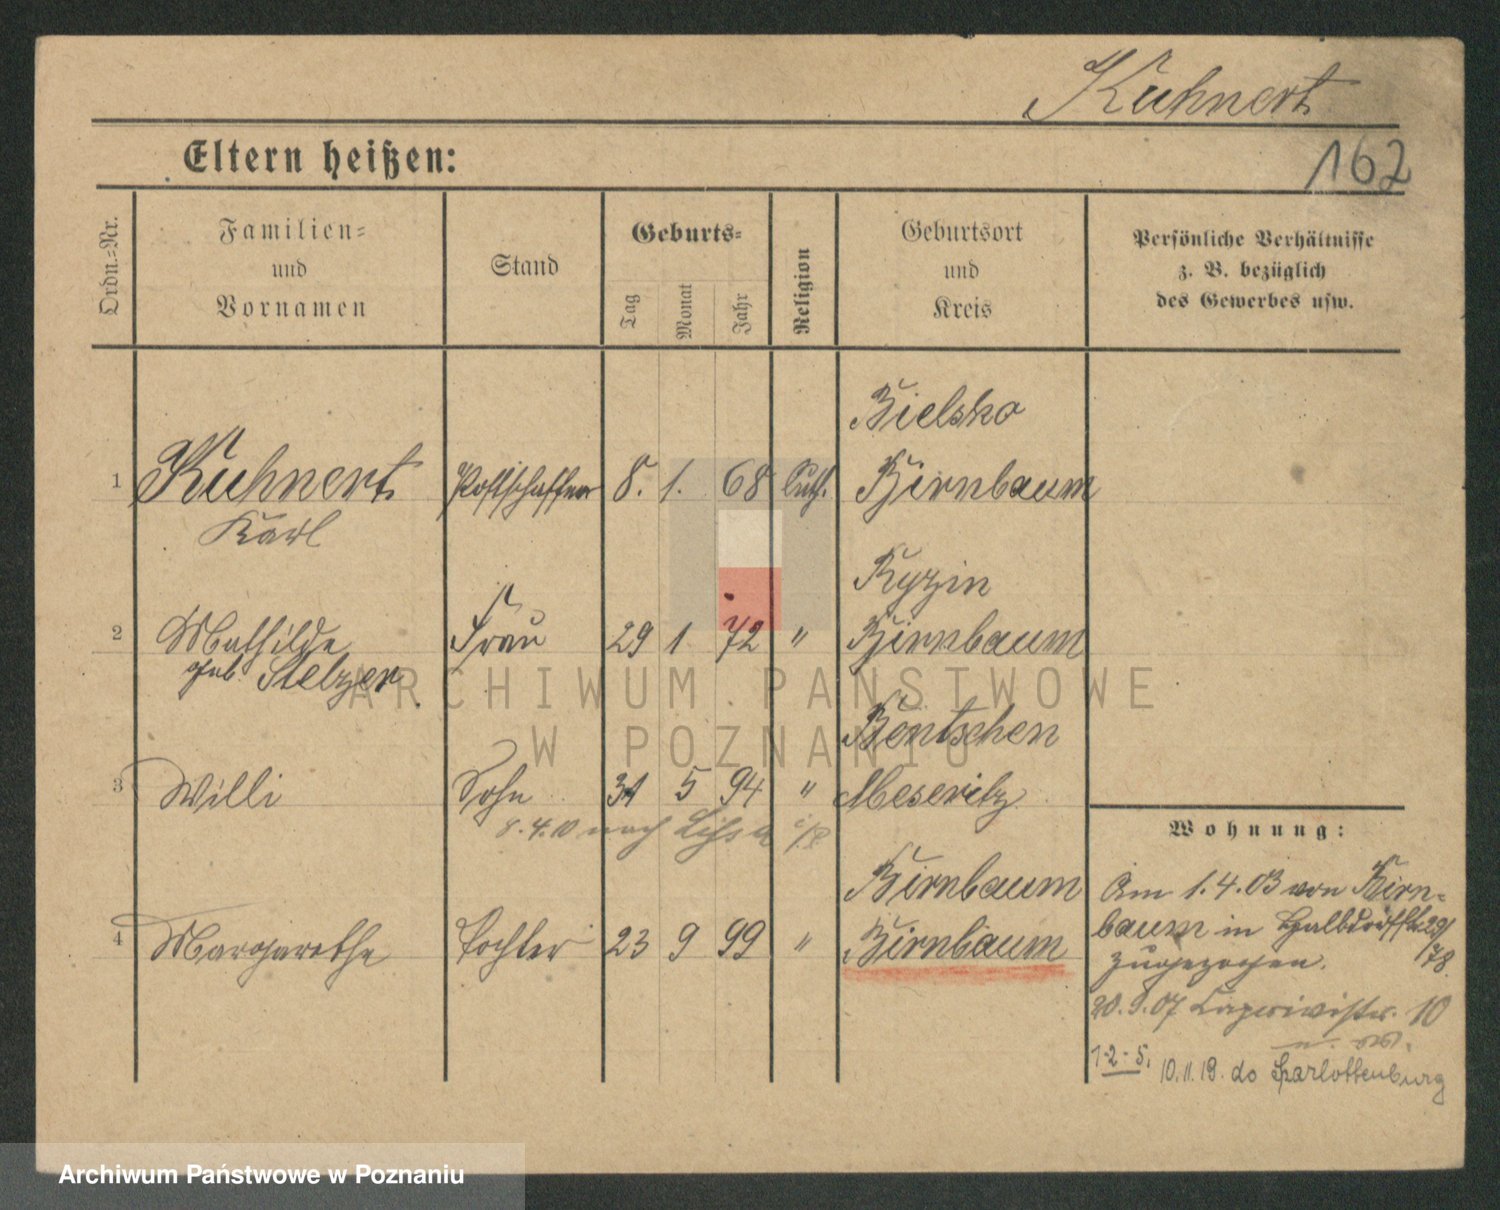 Kuhnert
162
Eltern heißen:
Ordn.-Nr.
Familien-
und
Vornamen
Stand
Geburts-
Tag
Monat
Jahr
Religion
Geburtsort
und
Kreis
Persönliche Verhältnisse
z. B. bezüglich
des Gewerbes usw.
Bielsko
1 Kuhnert Postschaffner 8. 1. 68 luth. Birnbaum
Karl
Kyzin
2 Mathilde Frau 29 1. 72 " Birnbaum
geb. Stelzer
Bentschen
3 Willi Sohn 31 5 94 " Meseritz
8.4.10 nach Lissa i/P
Wohnung:
Birnbaum
4 Margarethe Tochter 23 9 99 " Birnbaum
Am 1.4.03 von Birn-
baum in 29/
zugezogen. 78.
20.9.07 Caprivistr. 10
1-2-5. 10.11.19. do Charlottenburg
ARCHIWUM PAŃSTWOWE
W POZNANIU
Archiwum Państwowe w Poznaniu